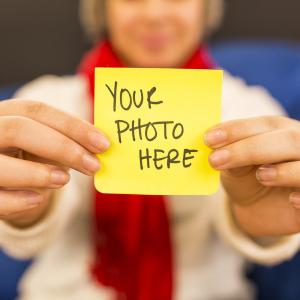 YOUR
PHOTO
HERE